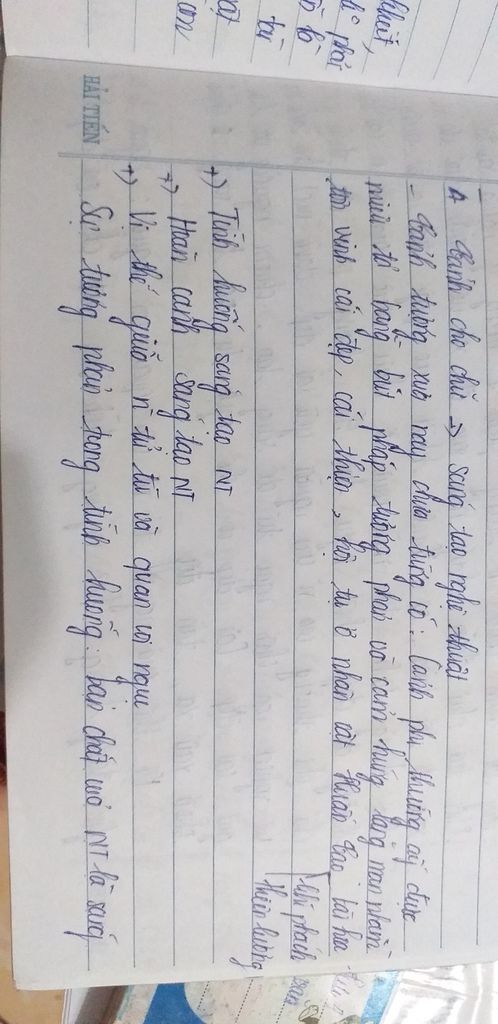 A Cảnh cho chữ => sáng tạo nghệ thuật
- Cảnh tượng xưa nay chưa từng có: Cảnh phi thường ấy được
miêu tả bằng bút pháp tương phản và cảm hứng lãng mạn nhằm
tôn vinh cái đẹp, cái thiện, hội tụ ở nhân vật Huấn Cao: tài hoa
khí phách
thiên lương
+) Tình huống sáng tạo NT
+) Hoàn cảnh sáng tạo NT
+) Vị thế giữa n tử tù và quan coi ngục
Sự tương phản trong tình huống: bản chất của NT là sáng
HẢI TIẾN